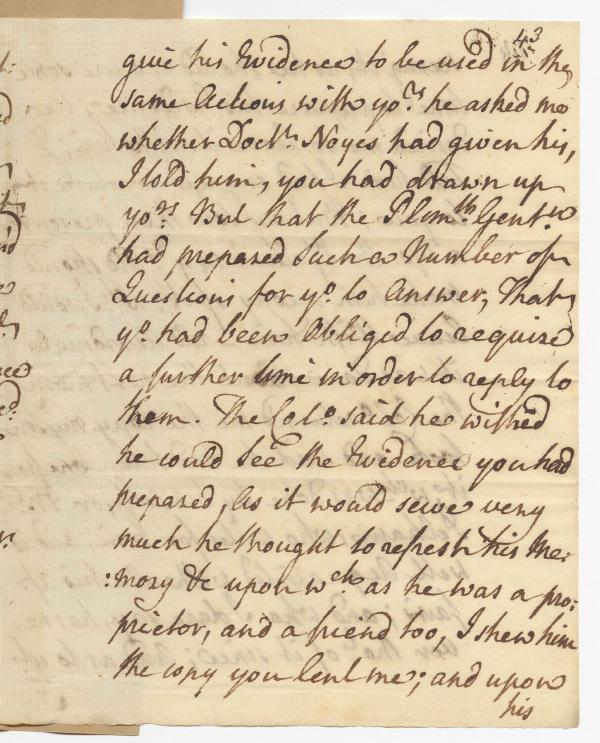 43
give his Evidence to be used in the
same Actions with yo.rs he asked me
whether Doct.r Noyes had given his,
I told him, you had drawn up
yo.rs But that the Plim.th Gent.n
had prepared such a Number of
Questions for yo. to Answer, That
yo. had been Obliged to require
a further time in order to reply to
them. The Col.o said he wished
he could See the Evidence you had
prepared, as it would serve very
much he thought to refresh his Me:
:mory &c upon w.ch as he was a pro:
prietor, and a friend too, I shew him
the copy you lent me; and upon
his